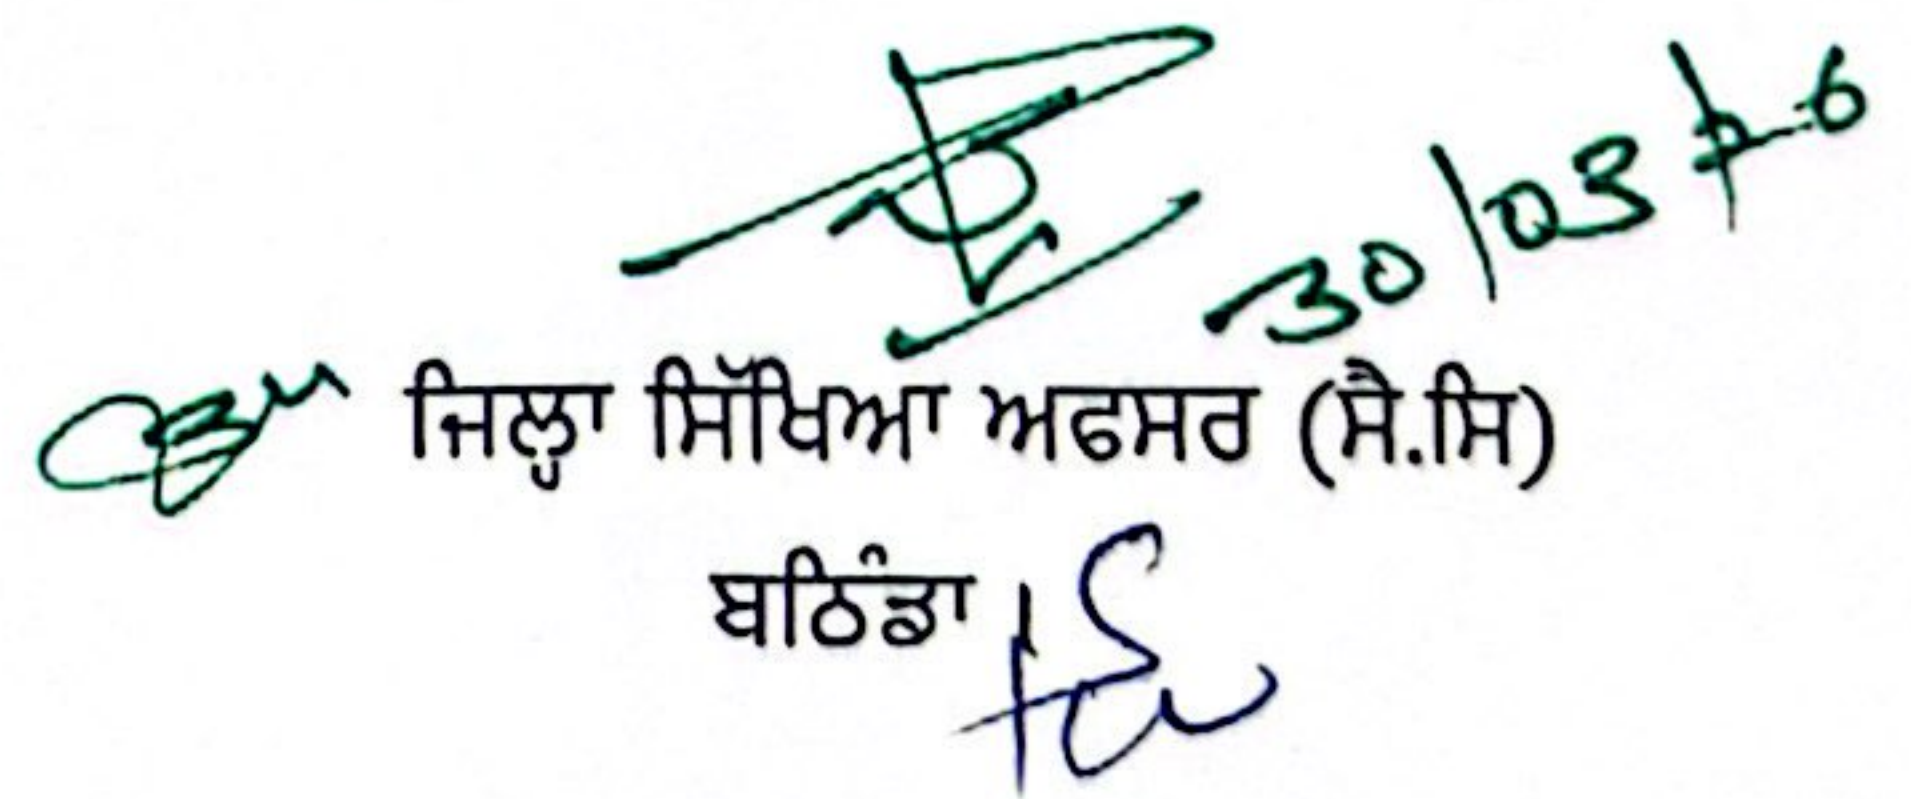 30/03/26
ਜਿਲ੍ਹਾ ਸਿੱਖਿਆ ਅਫਸਰ (ਸੈ.ਸਿ)
ਬਠਿੰਡਾ